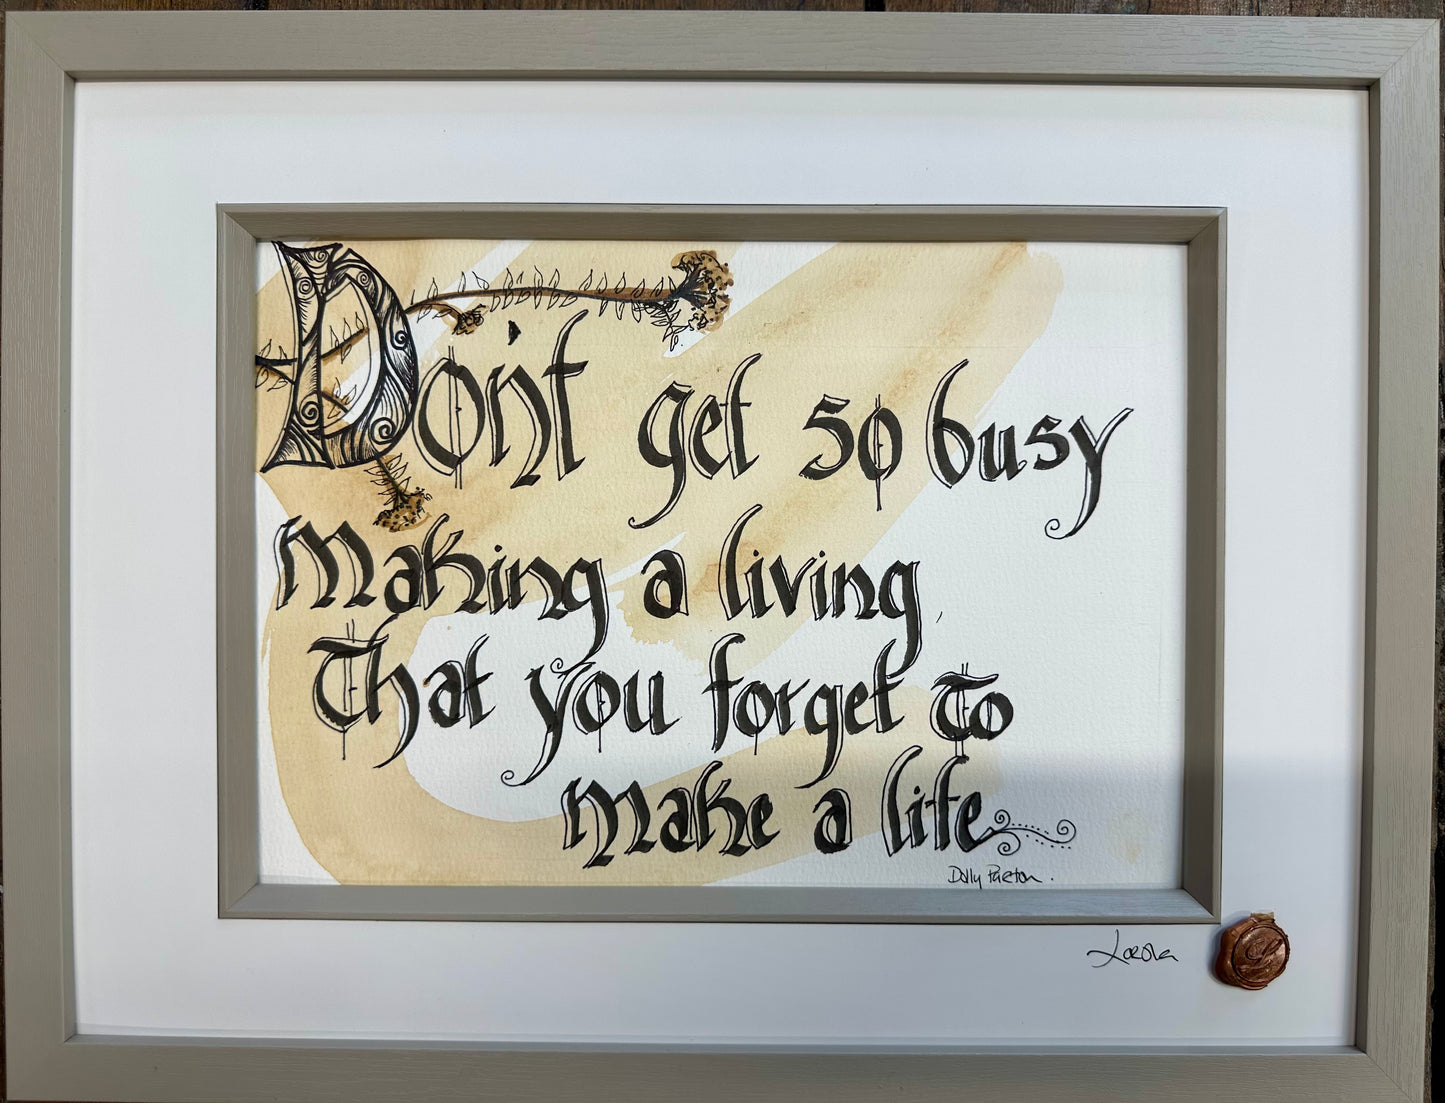 Don't get so busy
Making a living,
That you forget to
Make a life
Dolly Parton.
L